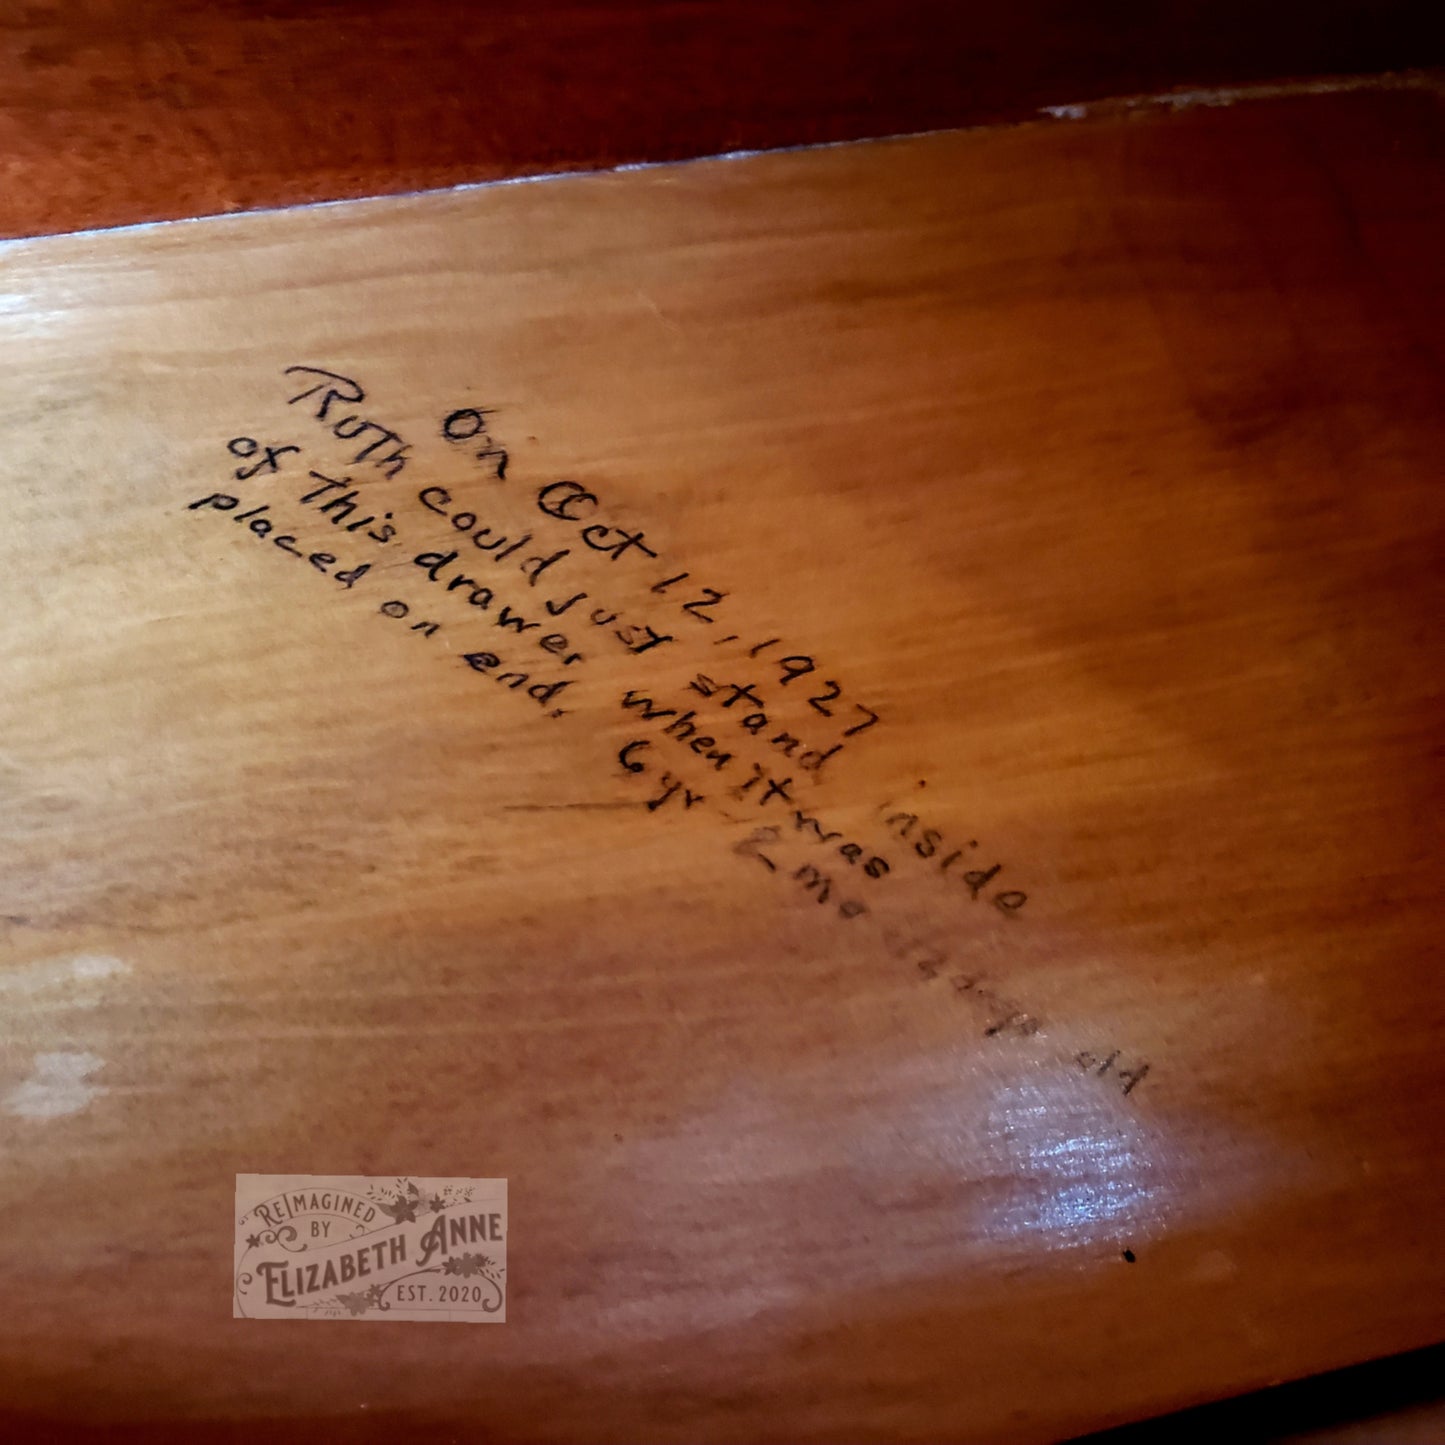 On Oct 12, 1927
Ruth could just stand inside
of this drawer when it was
placed on end.
6 yr 2 mo 12 days old
REIMAGINED
BY
ELIZABETH ANNE
EST. 2020